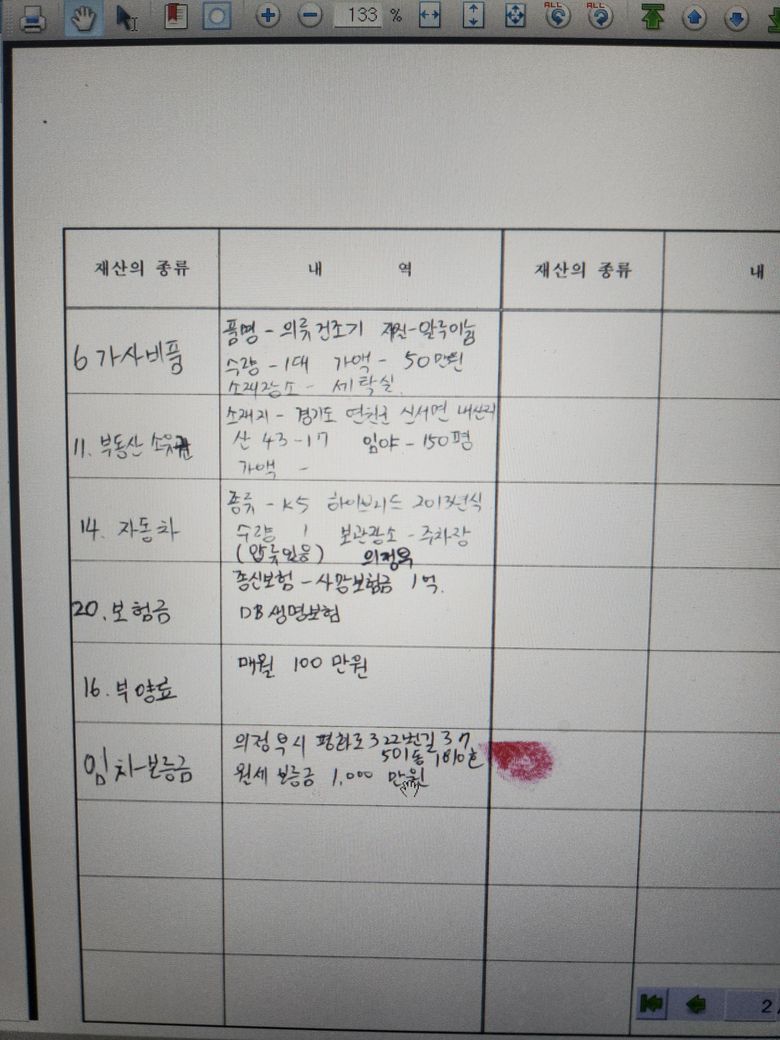 133 %
ALL ALL
재산의 종류 내 역 재산의 종류 내
6 가사비품
품명 - 의류건조기 재질-알루미늄
수량 - 1대 가액 - 50만원
소재장소 - 세탁실
11. 부동산 소유권
소재지 - 경기도 연천군 신서면 내산리
산 43-17 임야 - 150평
가액 -
14. 자동차
종류 - K5 하이브리드 2013년식
수량 1 보관장소 - 주차장
(압류있음) 의정부
20. 보험금
종신보험 - 사망보험금 1억.
DB생명보험
16. 부양료
매월 100만원
임차보증금
의정부시 평화로322번길 37
501동 1810호
월세 보증금 1,000 만원
2